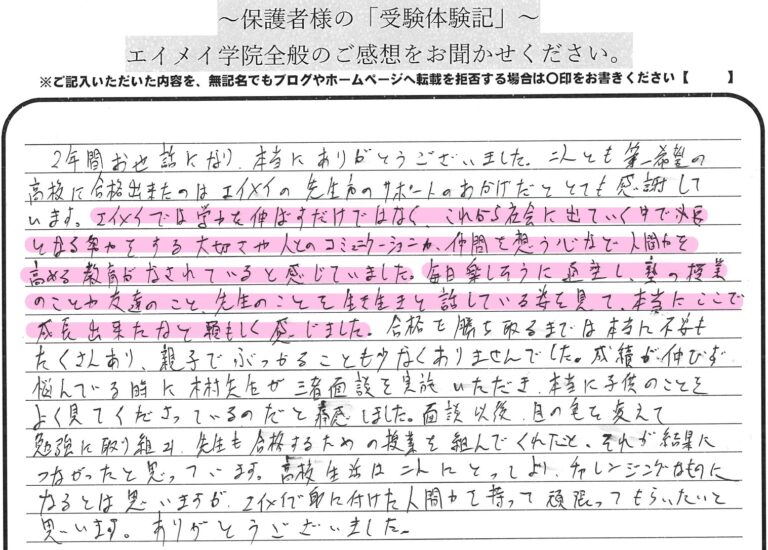 ～保護者様の「受験体験記」～
エイメイ学院全般のご感想をお聞かせください。
※ご記入いただいた内容を、無記名でもブログやホームページへ転載を拒否する場合は〇印をお書きください【　　】
2年間お世話になり、本当にありがとうございました。二人とも第一希望の
高校に合格出来たのはエイメイの先生方のサポートのおかげだととても感謝して
います。エイメイでは学力を伸ばすだけではなく、これから社会に出ていく中で必要
となる努力をする大切さや人とのコミュニケーション力、仲間を想う心など人間力を
高める教育がなされていると感じていました。毎日楽しそうに通塾し、塾の授業
のことや友達のこと、先生のことを生き生きと話している姿を見て、本当にここで
成長出来たなと頼もしく感じました。合格を勝ち取るまでは本当に不安も
たくさんあり、親子でぶつかることも少なくありませんでした。成績が伸びず
悩んでいる時に木村先生が三者面談を実施いただき、本当に子供のことを
よく見てくださっているのだと痛感しました。面談以後、目の色を変えて
勉強に取り組み、先生も合格するための授業を組んでくれたこと、それが結果に
つながったと思っています。高校生活は二人にとってより、チャレンジングなものに
なるとは思いますが、エイメイで身に付けた人間力を持って頑張ってもらいたいと
思います。ありがとうございました。